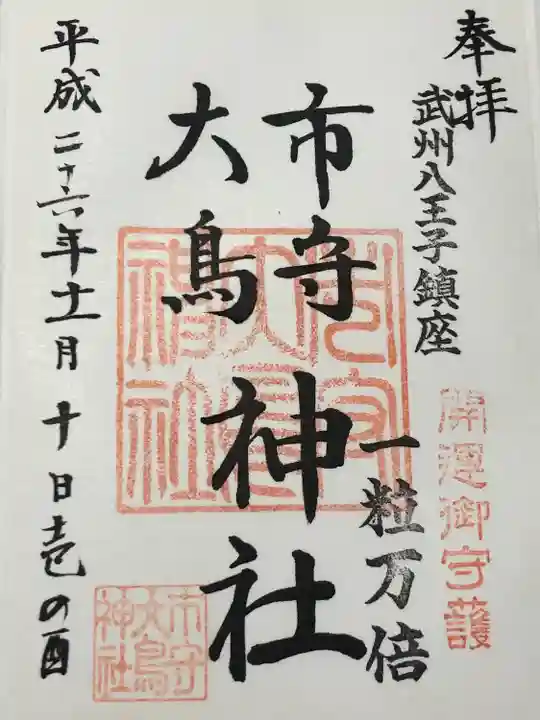 奉拝
武州八王子鎮座
一粒万倍
開運御守護
市守
大鳥
神社
市守
大鳥
神社
市守
大鳥
神社
平成二十六年十一月十日壱の酉